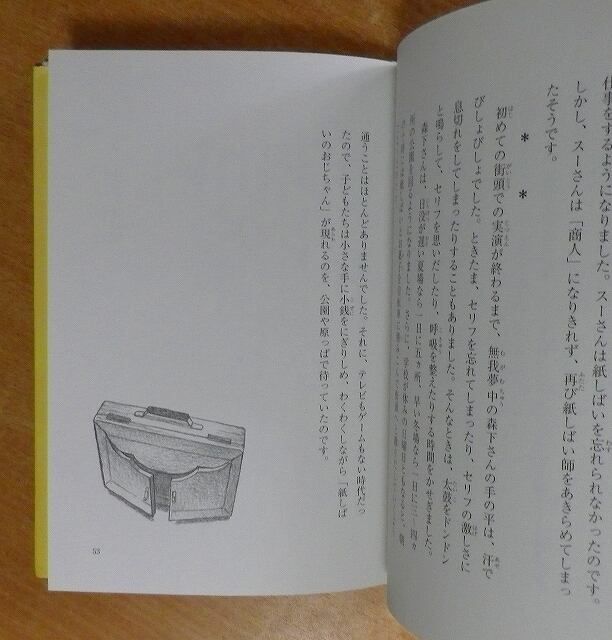 仕事をするようになりました。スーさんは紙しばいを忘れられなかったのです。
しかし、スーさんは「商人」になりきれず、再び紙しばい師をあきらめてしまっ
たそうです。
＊　＊
初めての街頭での実演が終わるまで、無我夢中の森下さんの手の平は、汗で
びしょびしょでした。ときたま、セリフを忘れてしまったり、セリフの激しさに
息切れをしてしまったりすることもありました。そんなときは、太鼓をドンドン
と鳴らして、セリフを思いだしたり、呼吸を整えたりする時間をかせぎました。
森下さんは、日没が遅い夏場なら一日に五ヵ所、早い冬場なら一日に三、四ヵ
所の公園を回るようになりました。さらに、学校が休みの日曜日ともなると、朝
通うことはほとんどありませんでした。それに、テレビもゲームもない時代だっ
たので、子どもたちは小さな手に小銭をにぎりしめ、わくわくしながら「紙しば
いのおじちゃん」が現れるのを、公園や原っぱで待っていたのです。
53